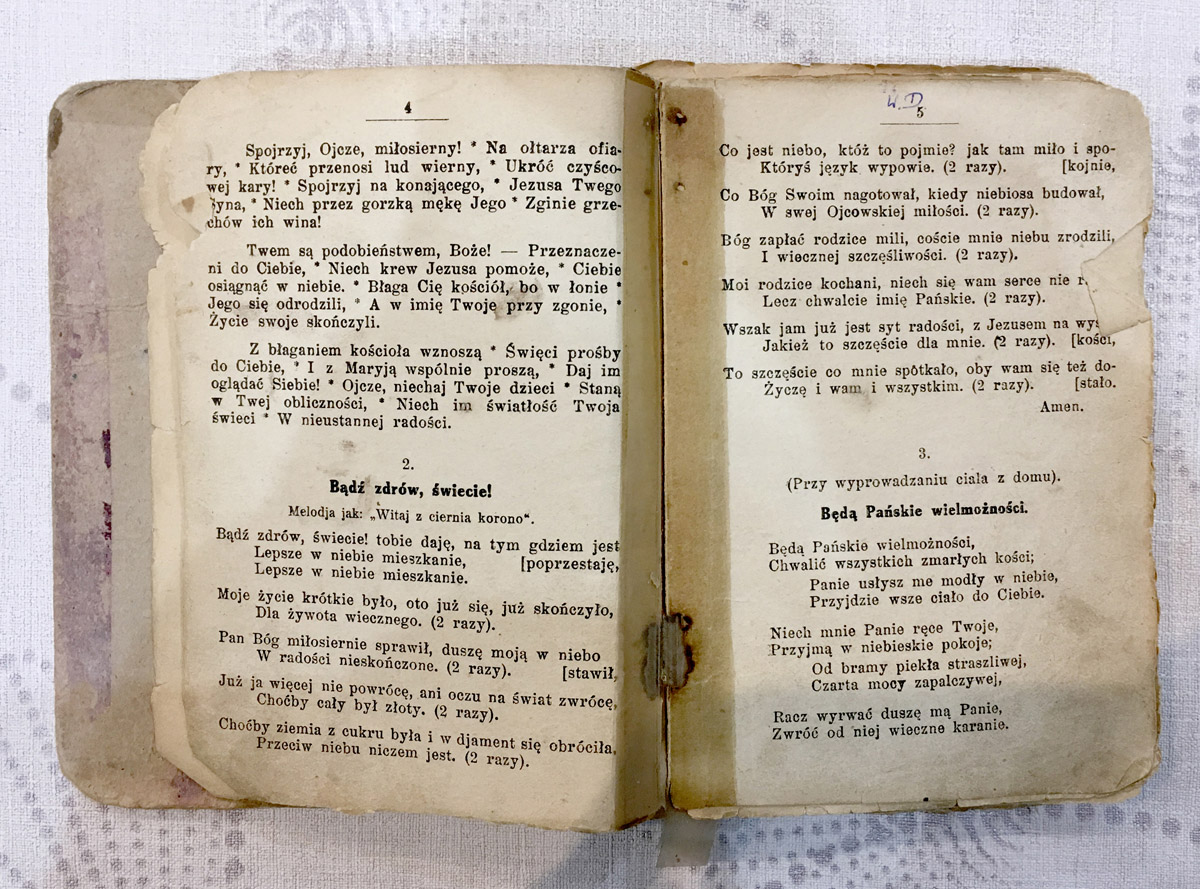 4
Spojrzyj, Ojcze, miłosierny! * Na ołtarza ofia-
ry, * Któreć przenosi lud wierny, * Ukróć czyśco-
wej kary! * Spojrzyj na konającego, * Jezusa Twego
Syna, * Niech przez gorzką mękę Jego * Zginie grze-
chów ich wina!
Twem są podobieństwem, Boże! — Przeznacze-
ni do Ciebie, * Niech krew Jezusa pomoże, * Ciebie
osiągnąć w niebie. * Błaga Cię kościół, bo w łonie *
Jego się odrodzili, * A w imię Twoję przy zgonie, *
Życie swoje skończyli.
Z błaganiem kościoła wznoszą * Święci prośby
do Ciebie, * I z Maryją wspólnie proszą, * Daj im
oglądać Siebie! * Ojcze, niechaj Twoje dzieci * Staną
w Twej obliczności, * Niech im światłość Twoja
świeci * W nieustannej radości.
2.
Bądź zdrów, świecie!
Melodja jak: „Witaj z ciernia korono“.
Bądź zdrów, świecie! tobie daję, na tym gdziem jest
Lepsze w niebie mieszkanie, [poprzestaję,
Lepsze w niebie mieszkanie.
Moje życie krótkie było, oto już się, już skończyło,
Dla żywota wiecznego. (2 razy).
Pan Bóg miłosiernie sprawił, duszę moją w niebo
W radości nieskończone. (2 razy). [stawił,
Już ja więcej nie powrócę, ani oczu na świat zwrócę,
Choćby cały był złoty. (2 razy).
Choćby ziemia z cukru była i w djament się obróciła,
Przeciw niebu niczem jest. (2 razy).
W. D.
5
Co jest niebo, któż to pojmie? jak tam miło i spo-
Któryś język wypowie. (2 razy). [kojnie,
Co Bóg Swoim nagotował, kiedy niebiosa budował,
W swej Ojcowskiej miłości. (2 razy).
Bóg zapłać rodzice mili, coście mnie niebu zrodzili,
I wiecznej szczęśliwości. (2 razy).
Moi rodzice kochani, niech się wam serce nie
Lecz chwalcie imię Pańskie. (2 razy).
Wszak jam już jest syt radości, z Jezusem na wys
Jakież to szczęście dla mnie. (2 razy). [kości,
To szczęście co mnie spótkało, oby wam się też do-
Życzę i wam i wszystkim. (2 razy). [stało.
Amen.
3.
(Przy wyprowadzaniu ciala z domu).
Będą Pańskie wielmożności.
Będą Pańskie wielmożności,
Chwalić wszystkich zmarłych kości;
Panie usłysz me modły w niebie,
Przyjdzie wsze ciało do Ciebie.
Niech mnie Panie ręce Twoje,
Przyjmą w niebieskie pokoje;
Od bramy piekła straszliwej,
Czarta mocy zapalczywej,
Racz wyrwać duszę mą Panie,
Zwróć od niej wieczne karanie.